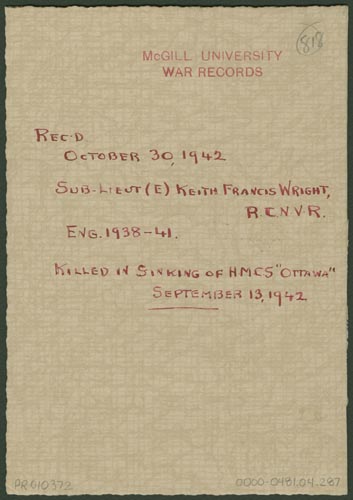 818
McGILL UNIVERSITY
WAR RECORDS
REC'D.
OCTOBER 30, 1942
SUB-LIEUT (E) KEITH FRANCIS WRIGHT,
R.C.N.V.R.
ENG. 1938-41.
KILLED IN SINKING OF HMCS "OTTAWA"
SEPTEMBER 13, 1942
PR010372
0000-0481.04.287